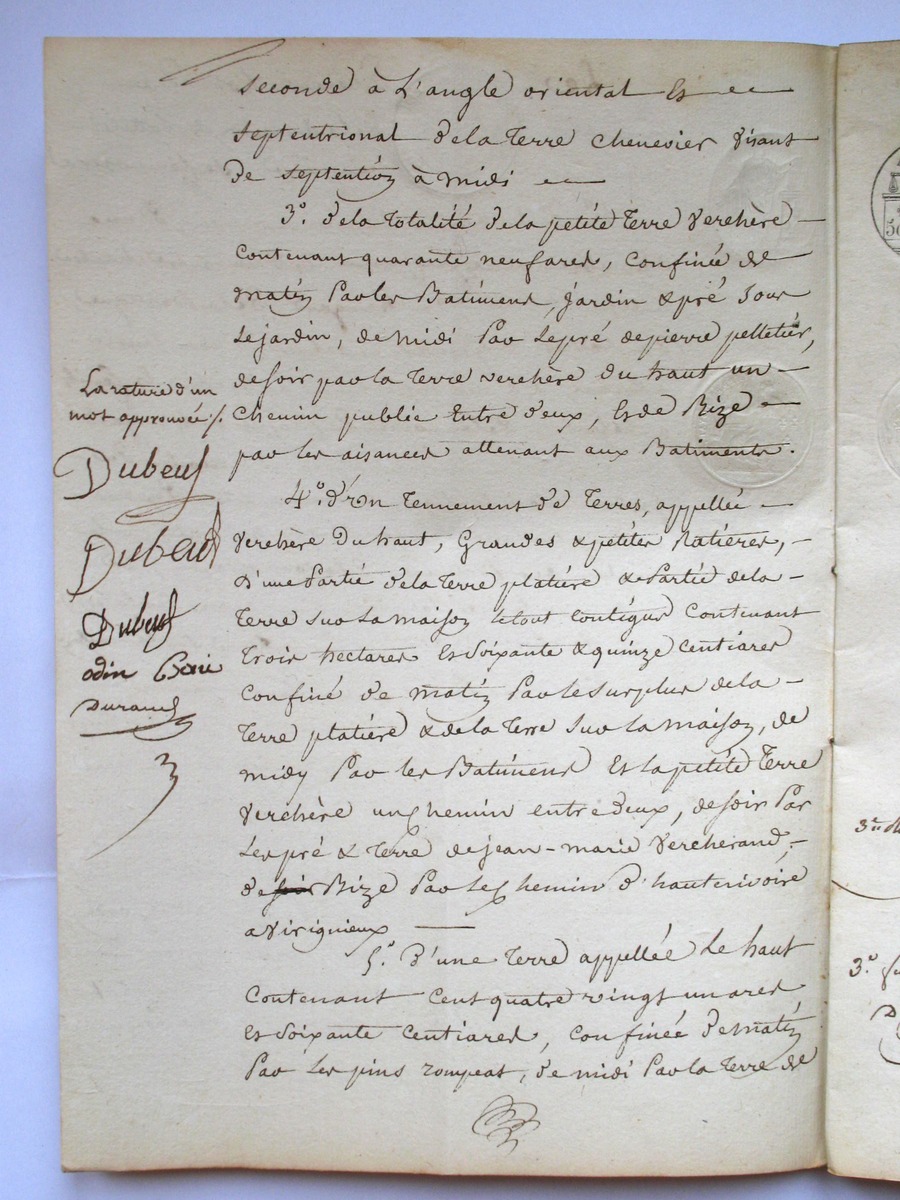 seconde à L'angle oriental Es
septentrional de la Terre chenevier visant
de septention à midi
3.º de la Totalité de la petite Terre Verchère
contenant quarante neuf ares, confinée de
matin Par les Batimens, jardin & pré sous
le jardin, de midi Par le pré de pierre pelletier,
de soir par la Terre verchère du haut un
chemin publie Entre d'eux, Es de Bize
par les aisances attenant aux Batiments.
4.º d'un Tennement de Terres, appellée
Verchère du haut, Grandes & petites Platières,
d'une Partie de la Terre platière & Partie de la
Terre sur la maison le tout contigus contenant
Trois hectares Es soixante & quinze Centiares
confiné de matin Par le surplus de la
Terre platière & de la Terre sur la maison, de
midy Par les Batimens Es la petite Terre
Verchère un chemin entre deux, de soir Par
les pré & Terre de jean-marie Vercherand,
de soir Bize Par le chemin d'hauterivoire
a Virignieux
5.º D'une Terre appellée Le haut
contenant cent quatre vingt un ares
Es soixante centiares, confinée de matin
Par Les pins rompeat, de midi Par la Terre de
La rature d'un
mot approuvée
Dubeuf
Dubeuf
Dubeuf
odin
Durand
3.º
D